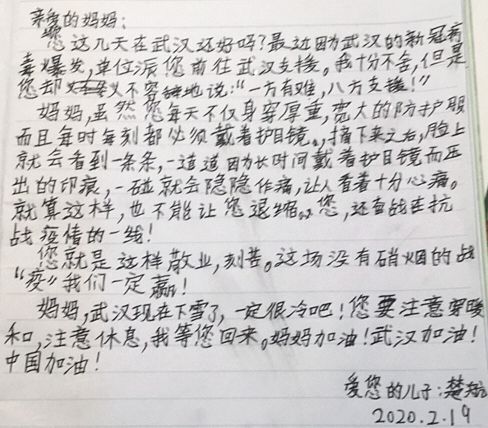 亲爱的妈妈：
您这几天在武汉还好吗？最近因为武汉的新冠病
毒爆发，单位派您前往武汉支援。我十分不舍，但是
您却义不容辞地说：“一方有难，八方支援！”
妈妈，虽然您每天不仅身穿厚重，宽大的防护服
而且每时每刻都必须戴着护目镜。，摘下来之后，脸上
就会看到一条条，一道道因为长时间戴着护目镜而压
出的印痕，一碰就会隐隐作痛，让人看着十分心痛。
就算这样，也不能让您退缩。您，还奋战在抗
战疫情的一线！
您就是这样敬业，刻苦。这场没有硝烟的战
“疫”我们一定赢！
妈妈，武汉现在下雪了，一定很冷吧！您要注意穿暖
和，注意休息，我等您回来。妈妈加油！武汉加油！
中国加油！
爱您的儿子：楚
2020.2.19